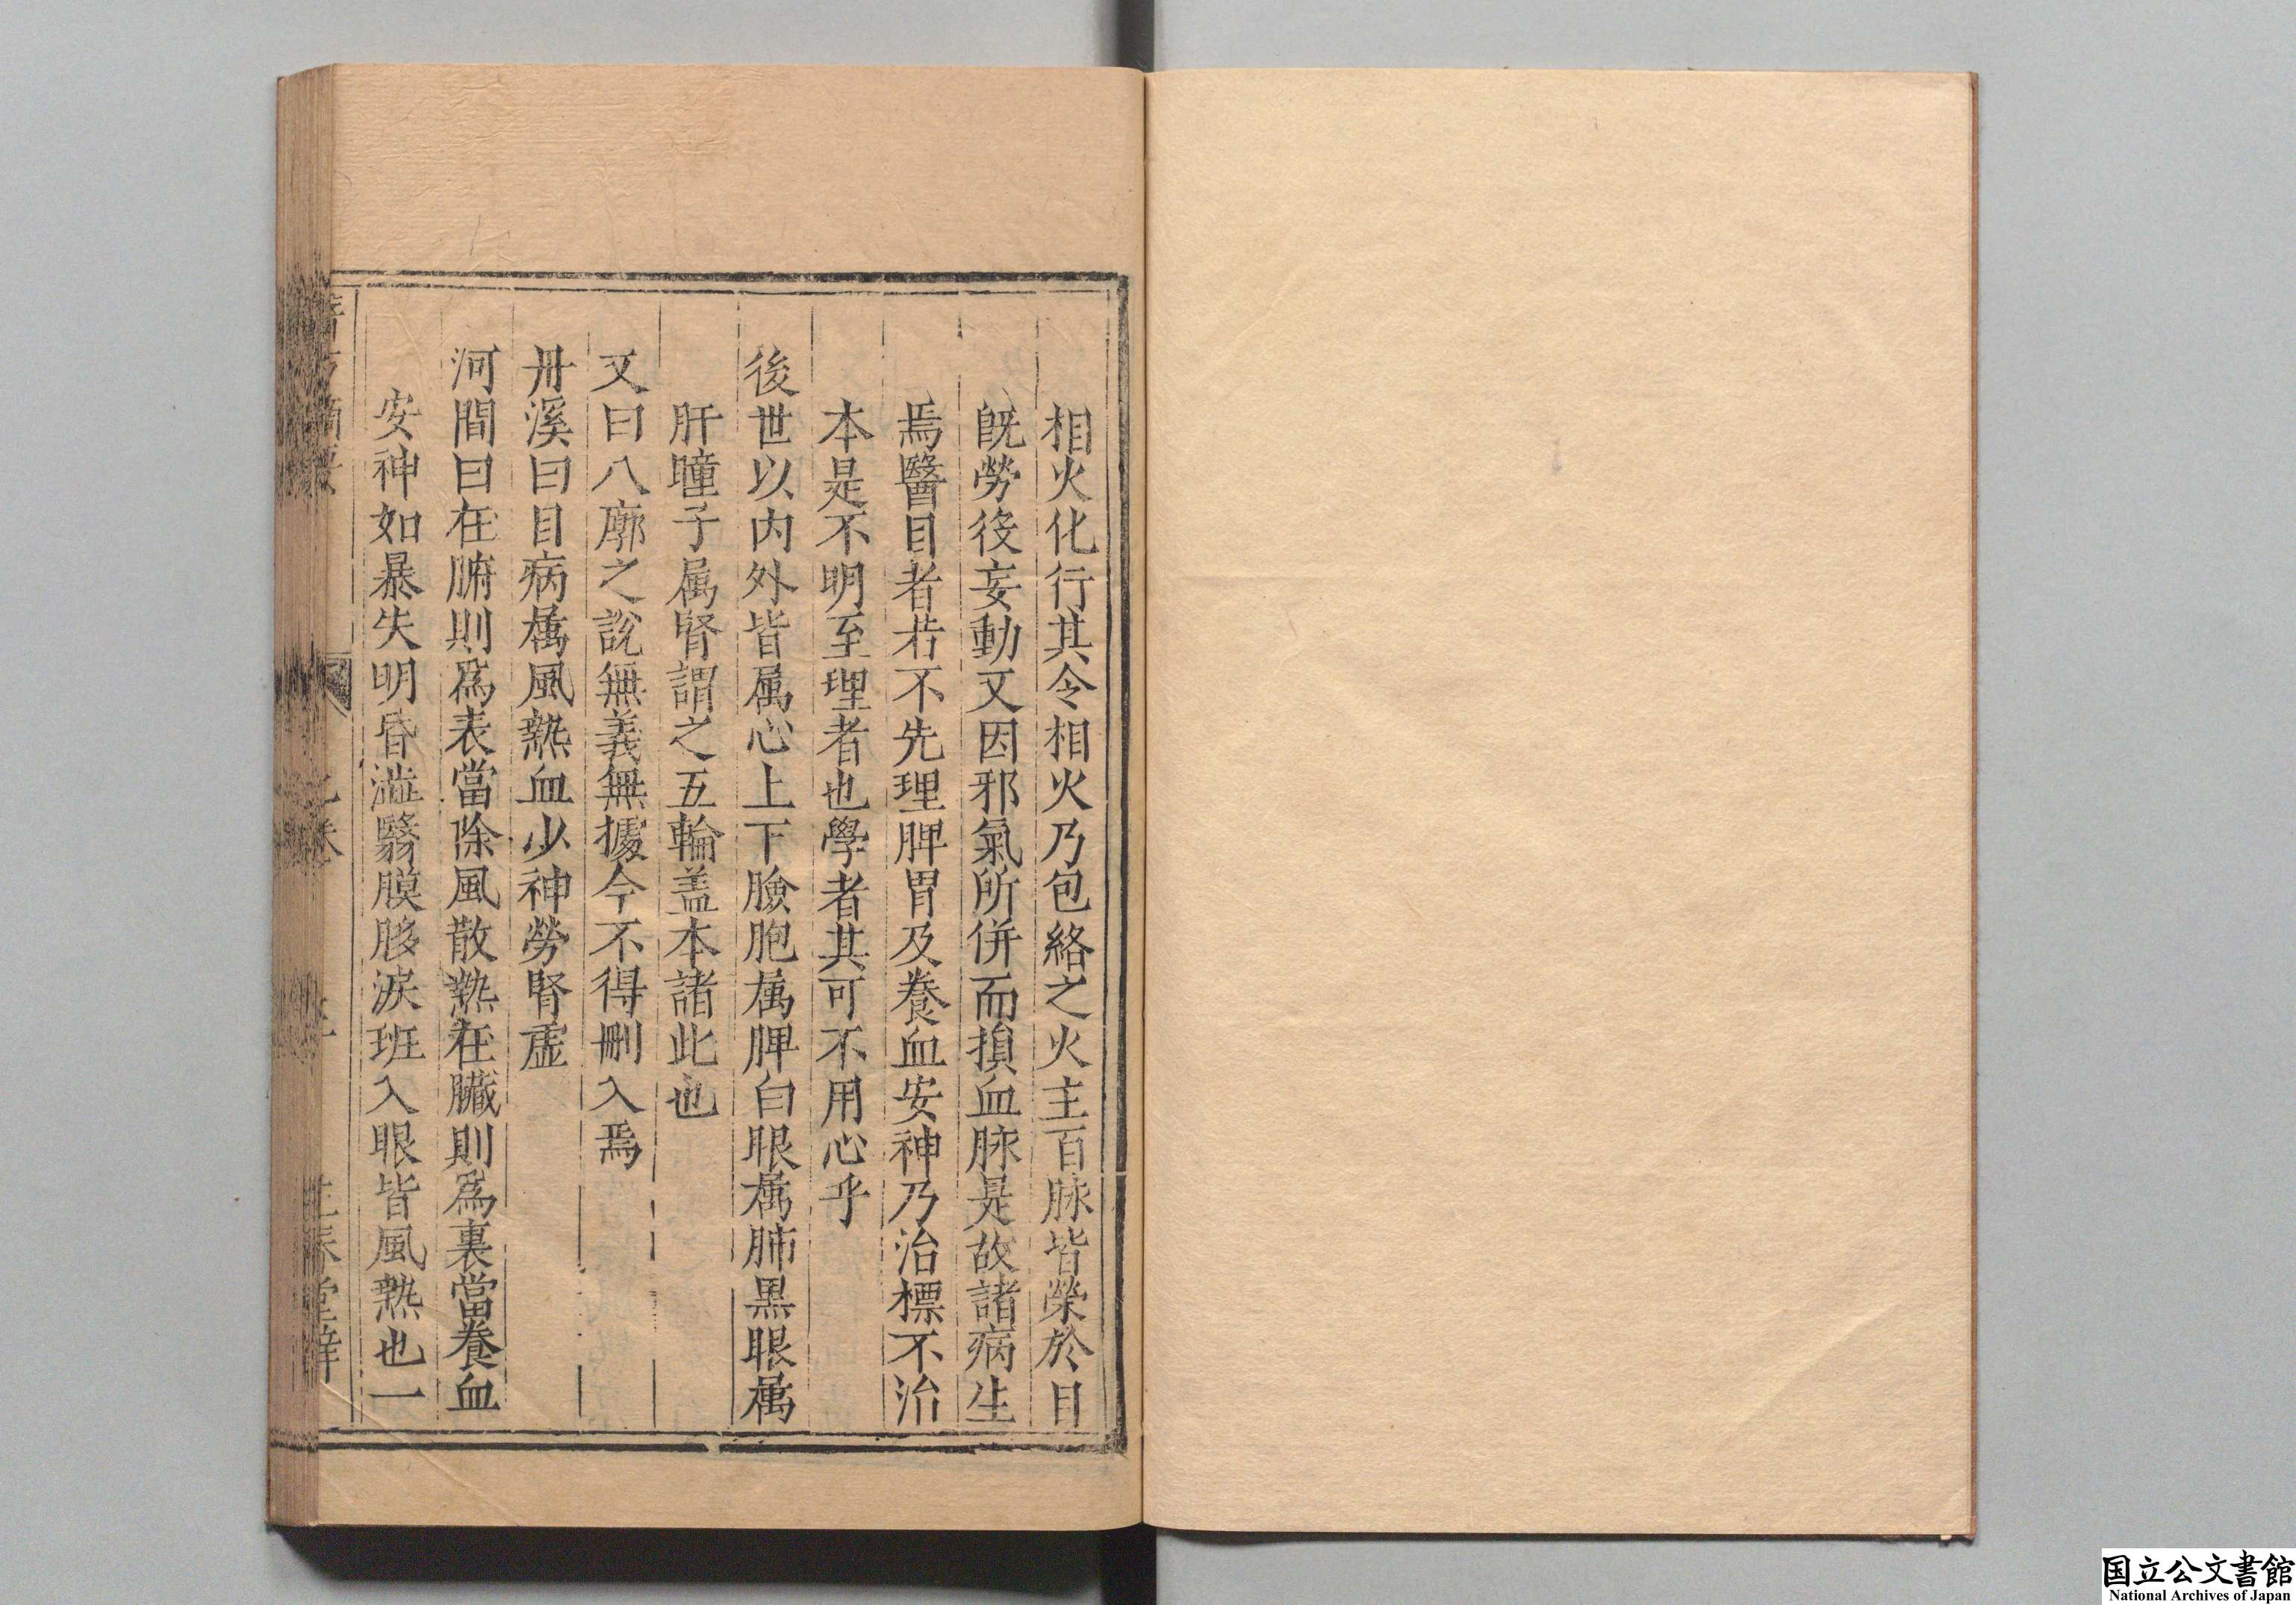 相火化行其令相火乃包絡之火主百脉皆榮於目
既勞役妄動又因邪氣所併而損血脉是故諸病生
焉醫目者若不先理脾胃及養血安神乃治標不治
本是不明至理者也學者其可不用心乎
後世以内外皆属心上下臉胞属脾白眼属肺黒眼属
肝瞳子属腎謂之五輪盖本諸此也
又曰八廓之說無義無據今不得刪入焉
丹溪曰目病属風熱血少神勞腎虛
河間曰在腑則為表當除風散熱在臟則為裏當養血
安神如暴失明昏澁翳膜眵淚班入眼皆風熱也一
国立公文書館
National Archives of Japan